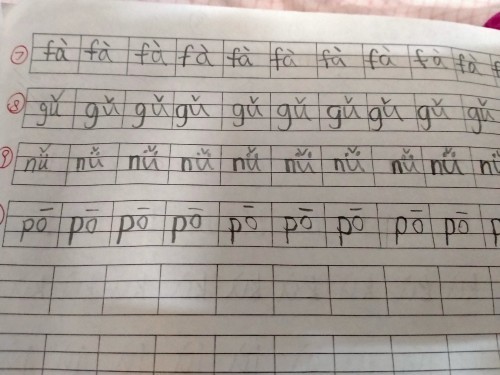 ⑦ fà fà fà fà fà fà fà fà fà fà
⑧ gǔ gǔ gǔ gǔ gǔ gǔ gǔ gǔ gǔ gǔ
⑨ nǚ nǚ nǚ nǚ nǚ nǚ nǚ nǚ nǚ nǚ
pō pō pō pō pō pō pō pō pō